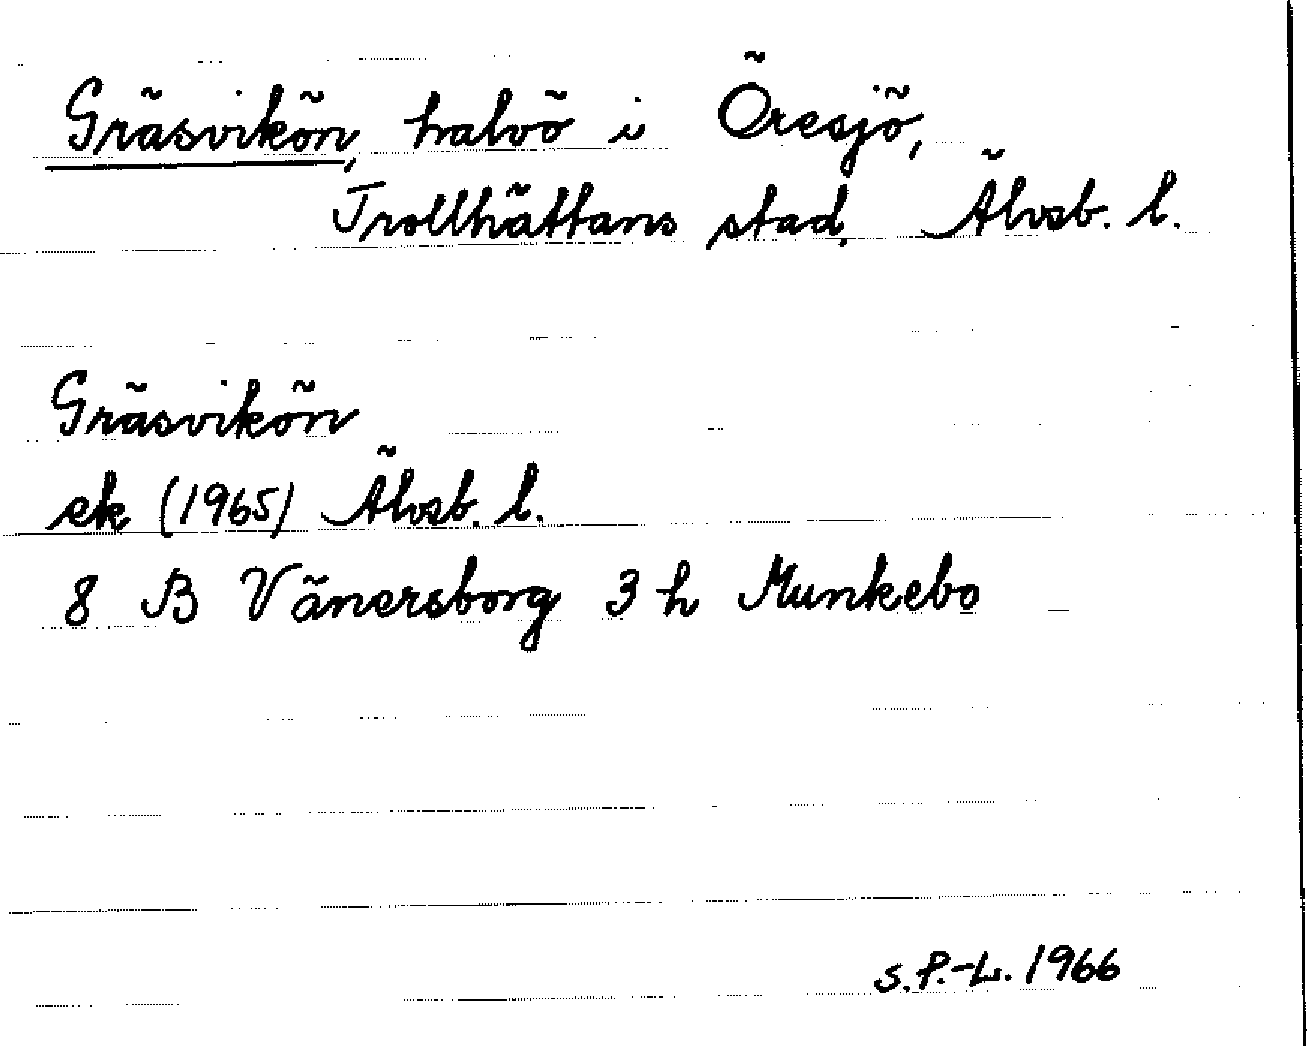 Gräsvikön, halvö i Öresjö,
Trollhättans stad, Älvsb. l.
Gräsvikön
ek (1965) Älvsb. l.
8 B Vänersborg 3 h Munkebo
S.P.-L. 1966